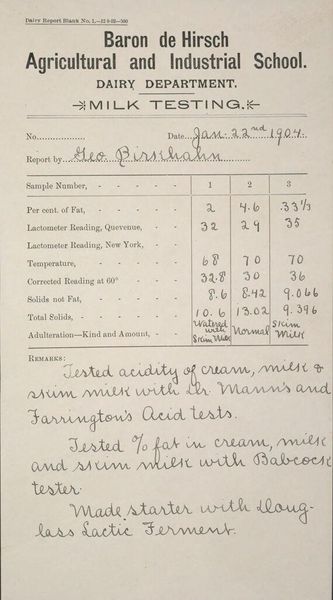 Dairy Report Blank No. 1.—12 9-02—500
Baron de Hirsch
Agricultural and Industrial School.
DAIRY DEPARTMENT.
MILK TESTING.
No. Date Jan. 22nd 1904.
Report by Geo Pirschahn
Sample Number, - - - - - 1 2 3
Per cent. of Fat, - - - - - 2 4.6 .33 1/3
Lactometer Reading, Quevenue, - - 32 29 35
Lactometer Reading, New York, - -
Temperature, - - - - - 68 70 70
Corrected Reading at 60° - - - 32.8 30 36
Solids not Fat, - - - - - 8.6 8.42 9.066
Total Solids, - - - - - 10.6 13.02 9.396
Adulteration—Kind and Amount, - - Watered with Skim Milk Normal Skim Milk
REMARKS:
Tested acidity of cream, milk &
skim milk with Dr. Mann's and
Farrington's Acid tests.
Tested % fat in cream, milk
and skim milk with Babcock
tester.
Made starter with Doug-
lass Lactic Ferment.